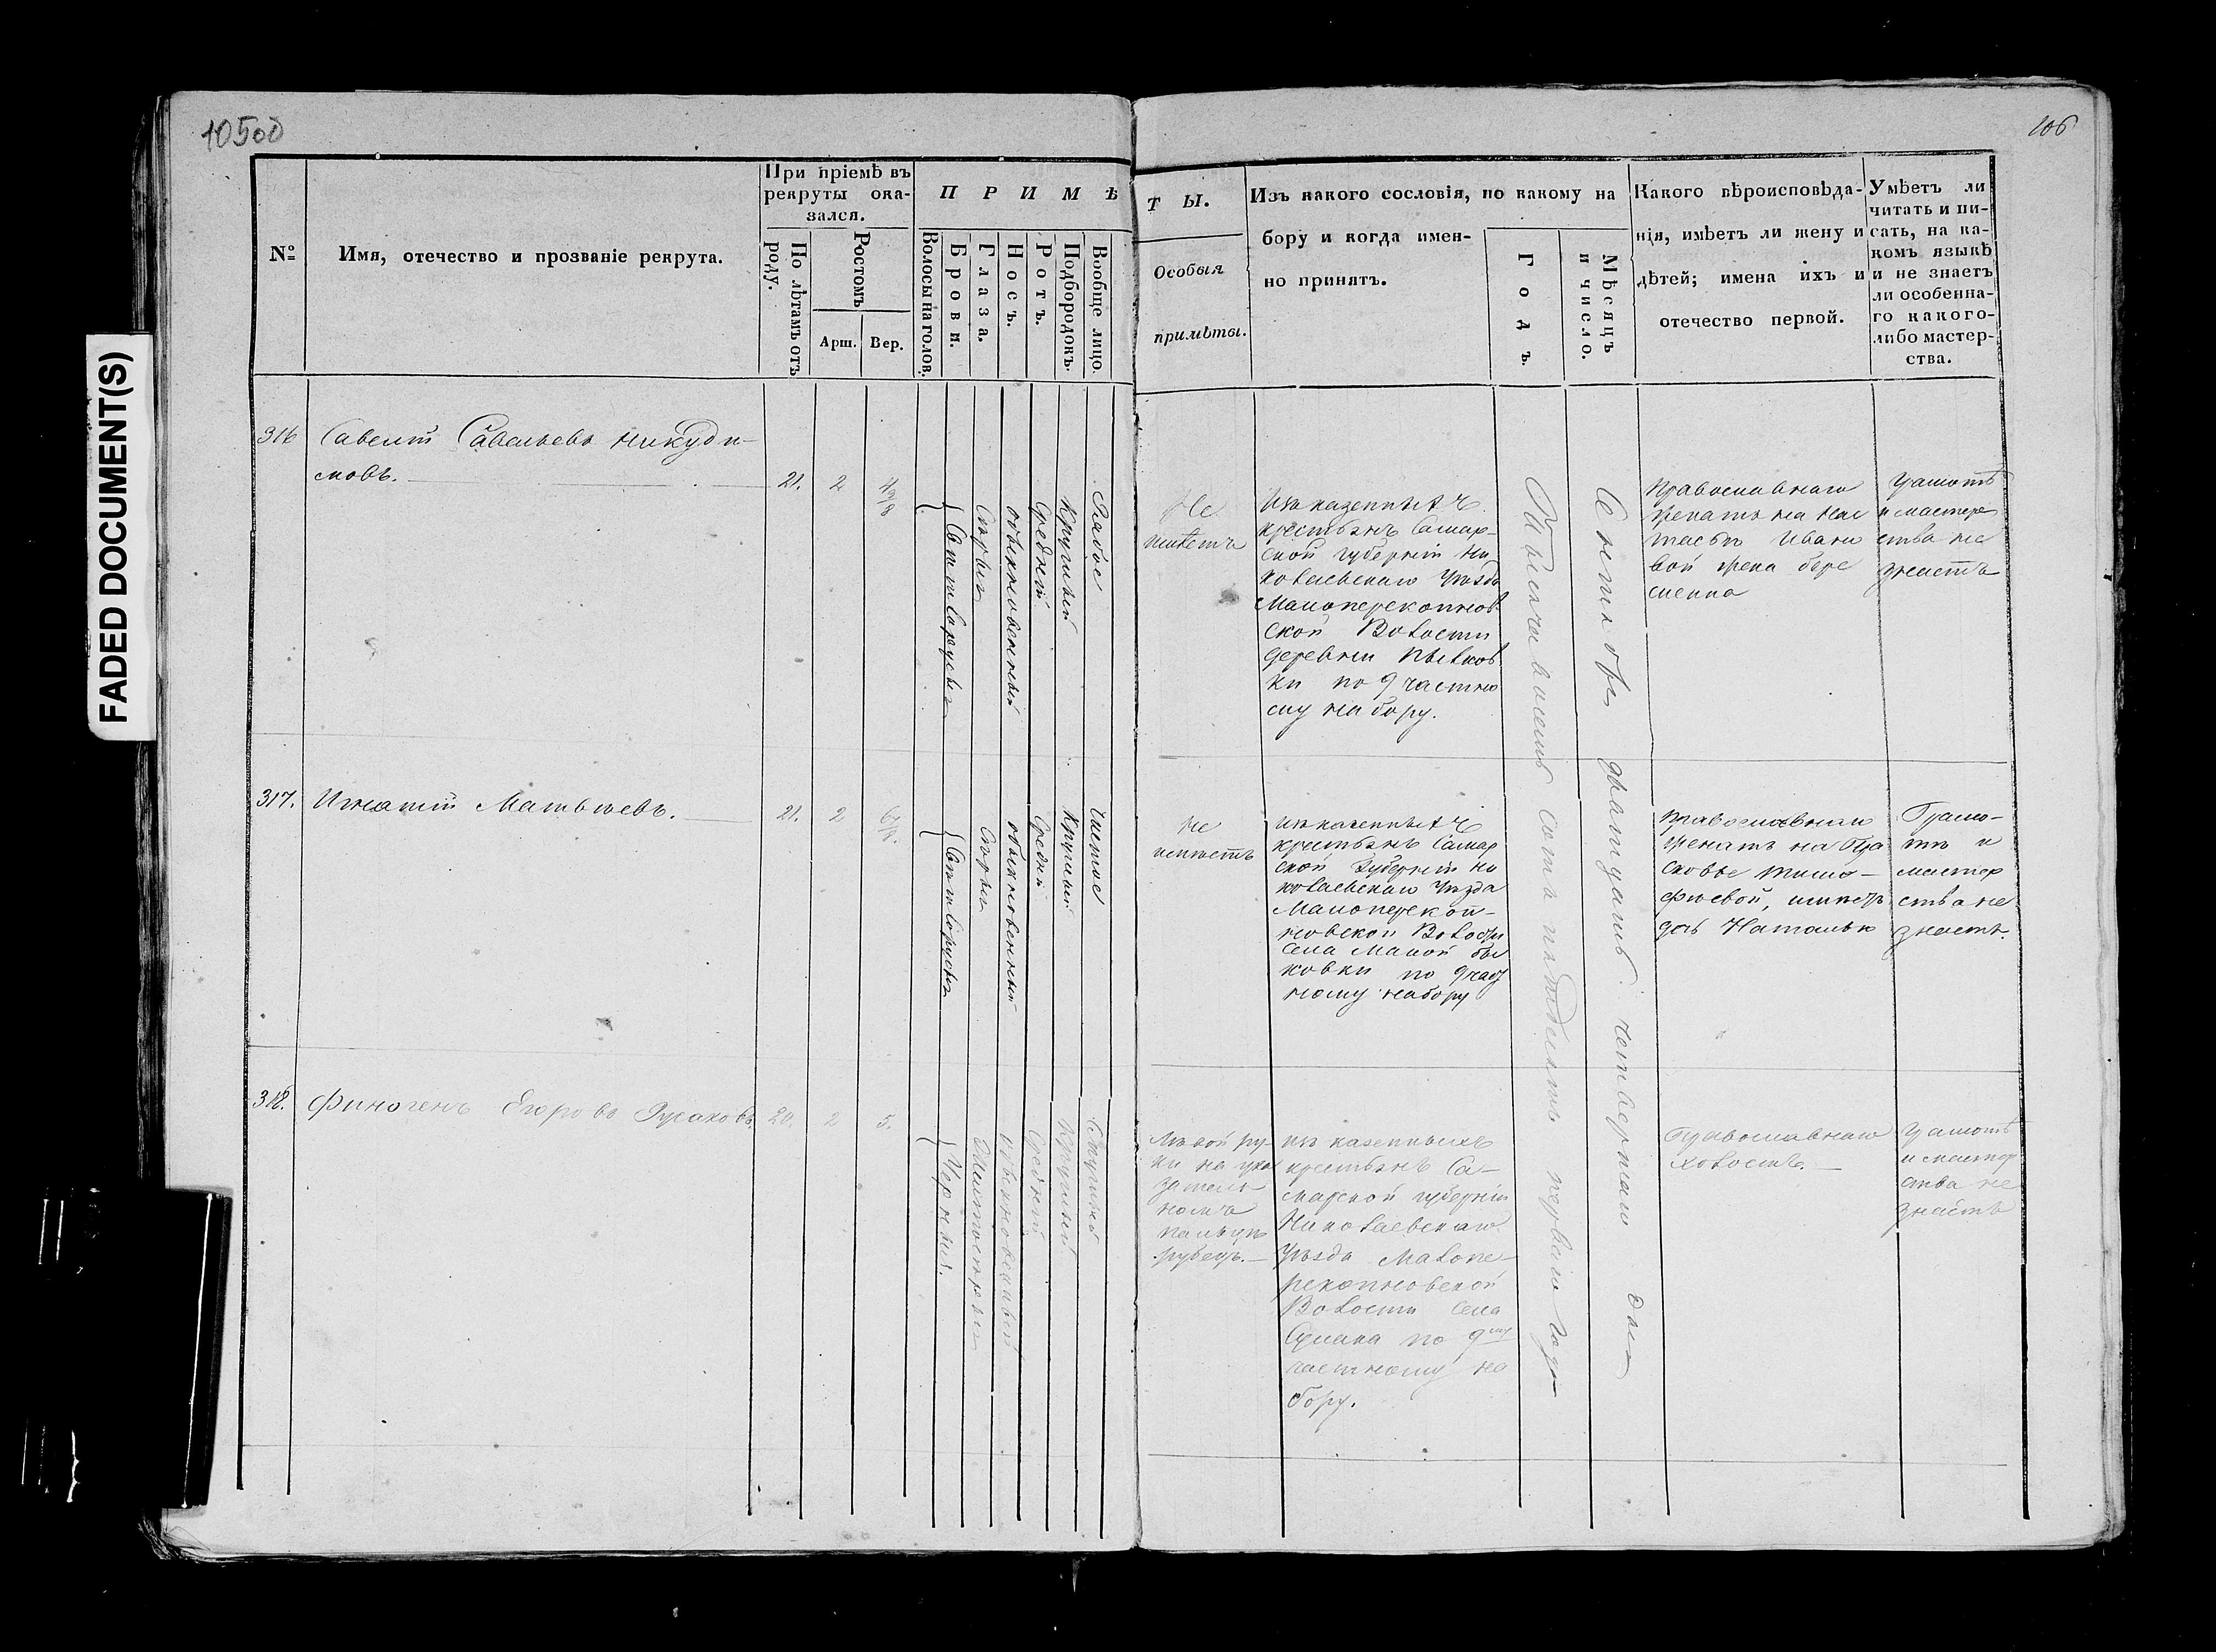 FADED DOCUMENT(S)
10500
106
№
Имя, отечество и прозваніе рекрута.
При пріемѣ въ
рекруты ока-
зался.
По лѣтамъ отъ
роду.
Ростомъ
Арш.
Вер.
ПРИМѢ
Волосы на голов.
Брови.
Глаза.
Носъ.
Ротъ.
Подбородокъ.
Вообще лицо.
ТЫ.
Особыя
примѣты.
Изъ какого сословія, по какому на
бору и когда имен-
но принятъ.
Годъ.
Мѣсяцъ
и число.
Какого вѣроисповѣда-
нія, имѣетъ ли жену и
дѣтей; имена ихъ и
отечество первой.
Умѣетъ ли
читать и пи-
сать, на ка-
комъ языкѣ
и не знаетъ
ли особенна-
го какого-
либо мастер-
ства.
316
Савелій Савельевъ Никуди-
мовъ.
21.
2
4 9/8
Свѣтлорусыя
Сѣрыя
обыкновенный
Средній
Круглый
Рябое
Не
имѣетъ
Изъ казенныхъ
крестьянъ Самар-
ской губерніи Ни
колаевскаго Уѣзда
Малоперекопнов
ской Волости
деревни
ки по 9 частно
му набору.
Тысяча восемь сотъ пятдесятъ перваго года
Сентября двадцать четвертаго дня
Православнаго
женатъ на Нас
тасьѣ Ивано
вой жена бере
менна
Грамотѣ
и мастер
ства не
знаетъ
317.
Игнатій Матвѣевъ.
21.
2
Свѣтлорусыя
Сѣрыя
обыкновенный
Средній
Круглый
Чистое
Не
имѣетъ
изъ казенныхъ
крестьянъ Самар
ской Губерніи Ни
колаевскаго Уѣзда
Малоперекоп-
новской Волости
Села Малой Бы
ковки по 9 част
ному набору
Православнаго
женатъ на Пра
сковьѣ Тимо-
фѣевой, имѣетъ
дочь Наталью
Грамо-
тѣ и
мастер
ства не
знаетъ.
318.
Финогенъ Егоровъ Русаковъ.
20.
2
5.
Черныя.
обыкновенный
Средній
Круглый
Лѣвой ру-
ки на ука
затель
номъ
пальцѣ
рубецъ.
изъ казенныхъ
крестьянъ Са-
марской губерніи
Николаевскаго
Уѣзда Малопе-
рекопновской
Волости Села
по 9му
частному на
бору.
Православнаго
холостъ.
Грамотѣ
и мастер
ства не
знаетъ